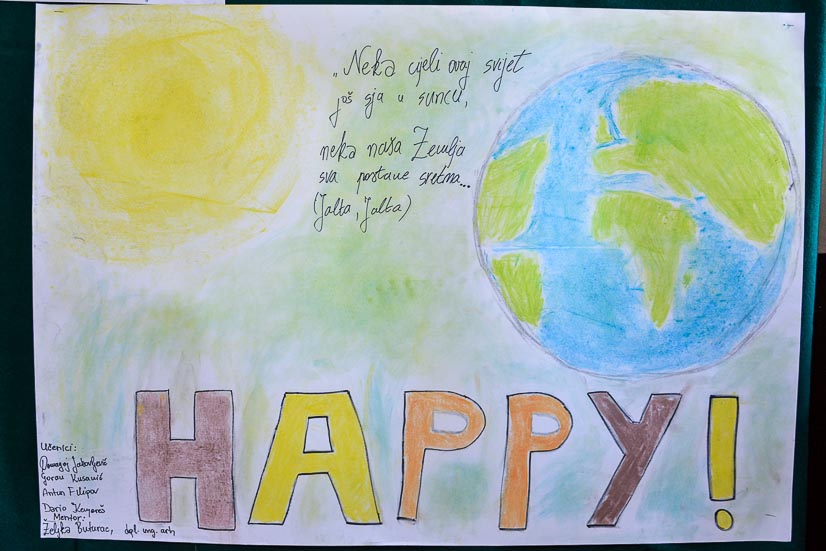 „Neka cijeli ovaj svijet
još sja u suncu,
neka naša Zemlja
sva postane sretna...
(Jalta, Jalta)
HAPPY!
Učenici:
Domagoj
Goran
Antun Filipov
Dario
Mentor:
Željka Buturac, dipl. ing. arh.